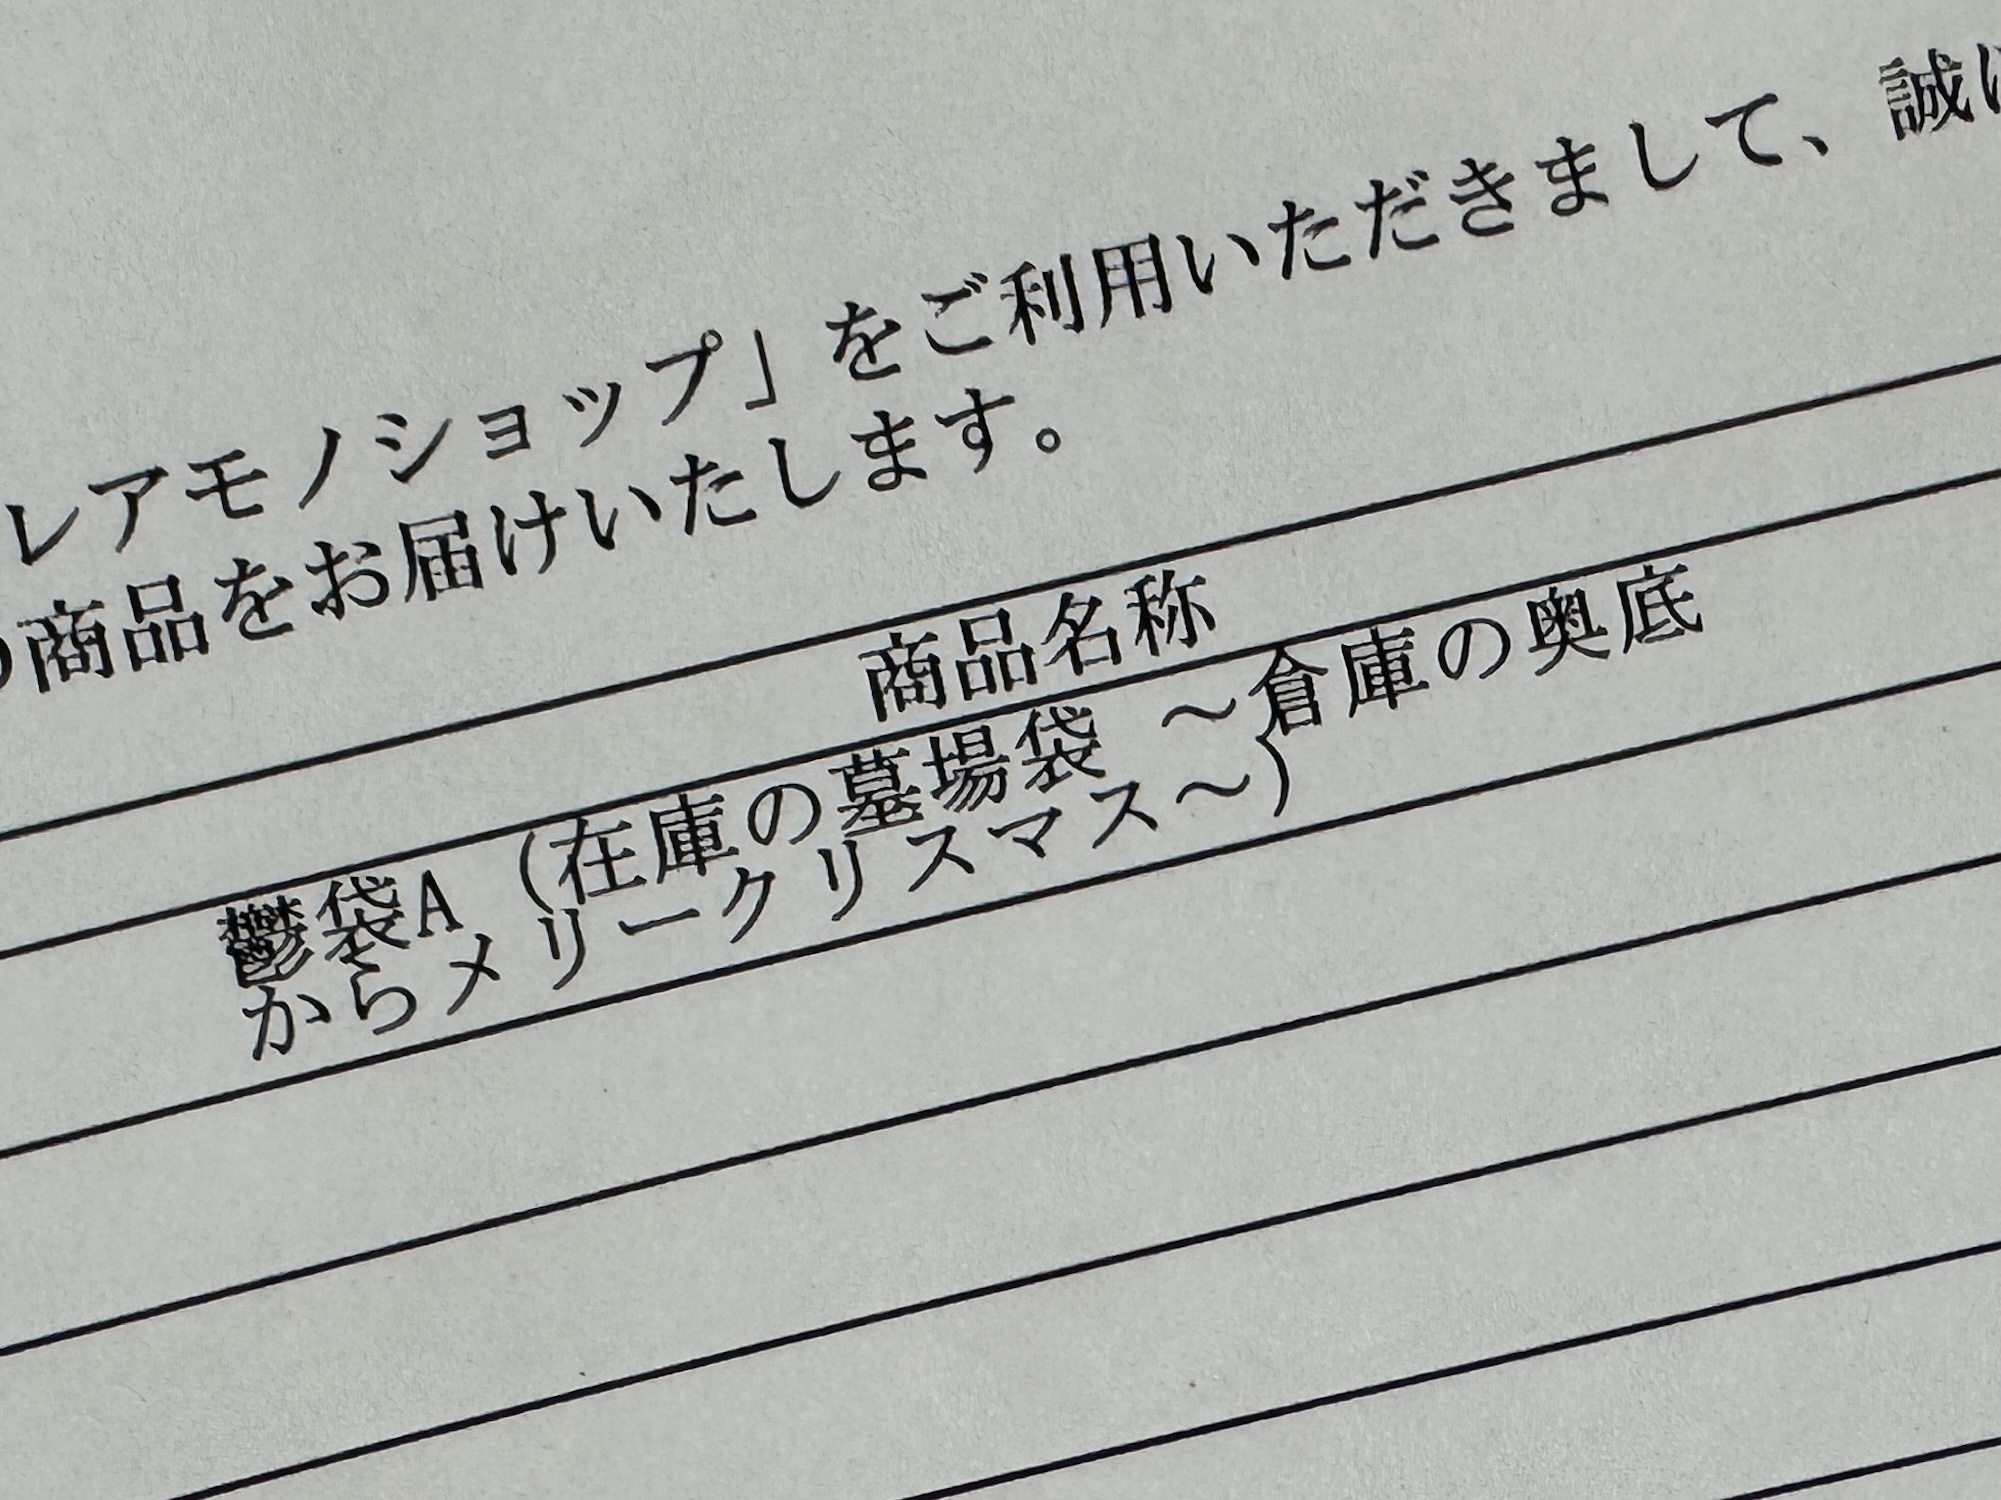 レアモノショップ」をご利用いただきまして、誠に
の商品をお届けいたします。
商品名称
鬱袋A（在庫の墓場袋 ～倉庫の奥底
からメリークリスマス～）